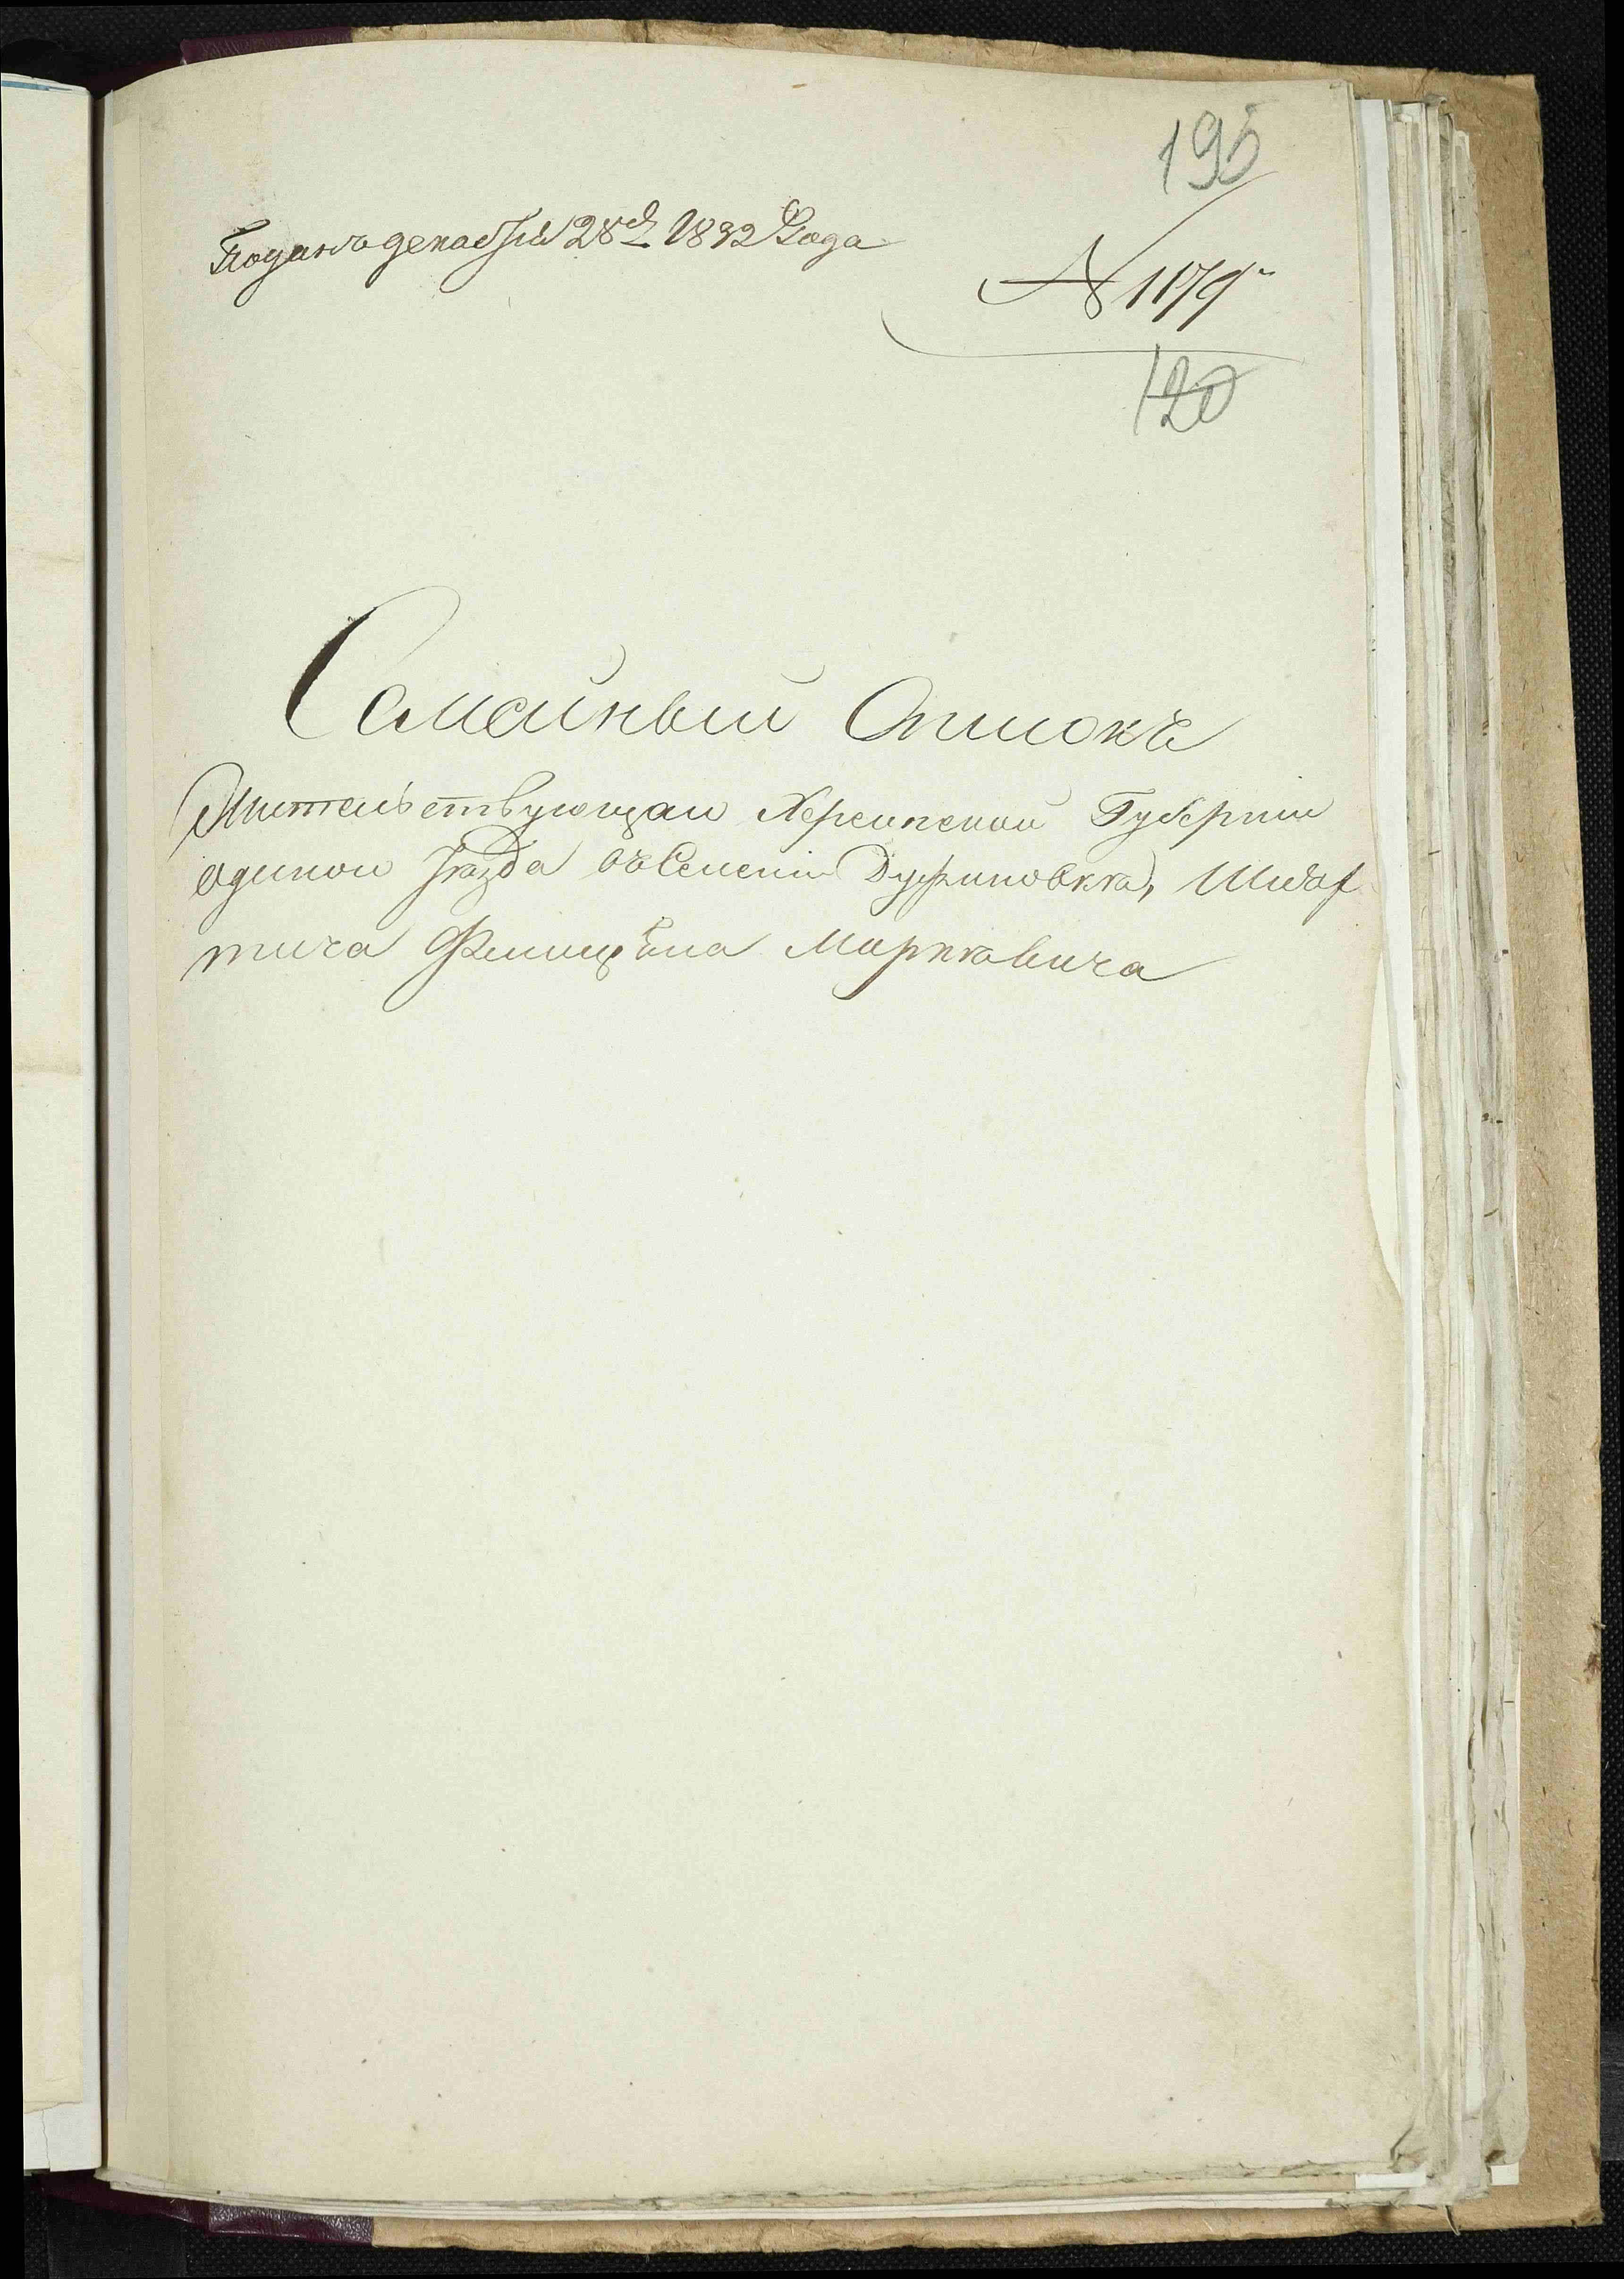 195
Поданъ декабря 28д 1892 Года
№ 1179
120
Семейный Списокъ
Жительствующаго Херсонской Губерніи
Одескои Уезда въ Селеніи Дуфиновкка, Шлях
тича Филиціяна Марковича